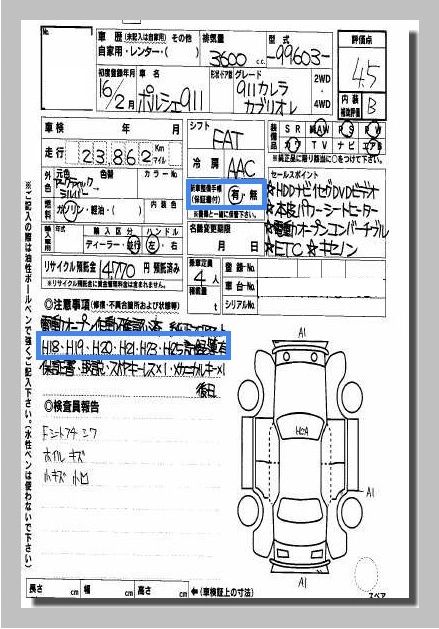 車歴 (未記入は自家用) その他
自家用・レンター・( )
排気量
3600 c.c.
型式
-99603-
評価点
4.5
初度登録年月
16/2月
車名
ポルシェ911
形状ドア数
グレード
911カレラ
カブリオレ
2WD
4WD
内装
補助評価
B
車検 年 月
シフト
FAT
装備品
SR AW PS PW
カワ TV ナビ エアB
※純正品に限り該当に○をつけて下さい。
走行 23862 Km マイル
冷房
AAC
外色
元色 色替
カラーNo
アークティック
シルバー
新車整備手帳
(保証書付)
有・無
※書類と一緒に保管下さい。
セールスポイント
☆HDDナビ/地デジ/DVDビデオ
☆本皮パワーシートヒーター
☆電動オープンコンバーチブル
☆ETC ☆キセノン
燃料
ガソリン・軽油・( )
内装色
輸入車
年式
輸入区分
ハンドル
ディーラー・並行
左・右
名義変更期限
月 日
リサイクル預託金 14,770 円 預託済
※リサイクル預託金に資金管理料金は含まれません。
乗車定員
4人
積載量
t
登録No.
車台No.
シリアルNo.
◎注意事項 (修復・不具合箇所および状態等)
H18・H19・H20・H21・H23・H25
保証書・取説・スペアキーレス×1・メカニカルキー×1
後日
◎検査員報告
Fシートスチ シワ
ホイルキズ
小キズ 小凹
A1
A1
A1
スペア
長さ cm 幅 cm 高さ cm ←(車検証上の寸法)
※ご記入の際は油性ボールペンで強くご記入下さい。(水性ペンは使わないで下さい)